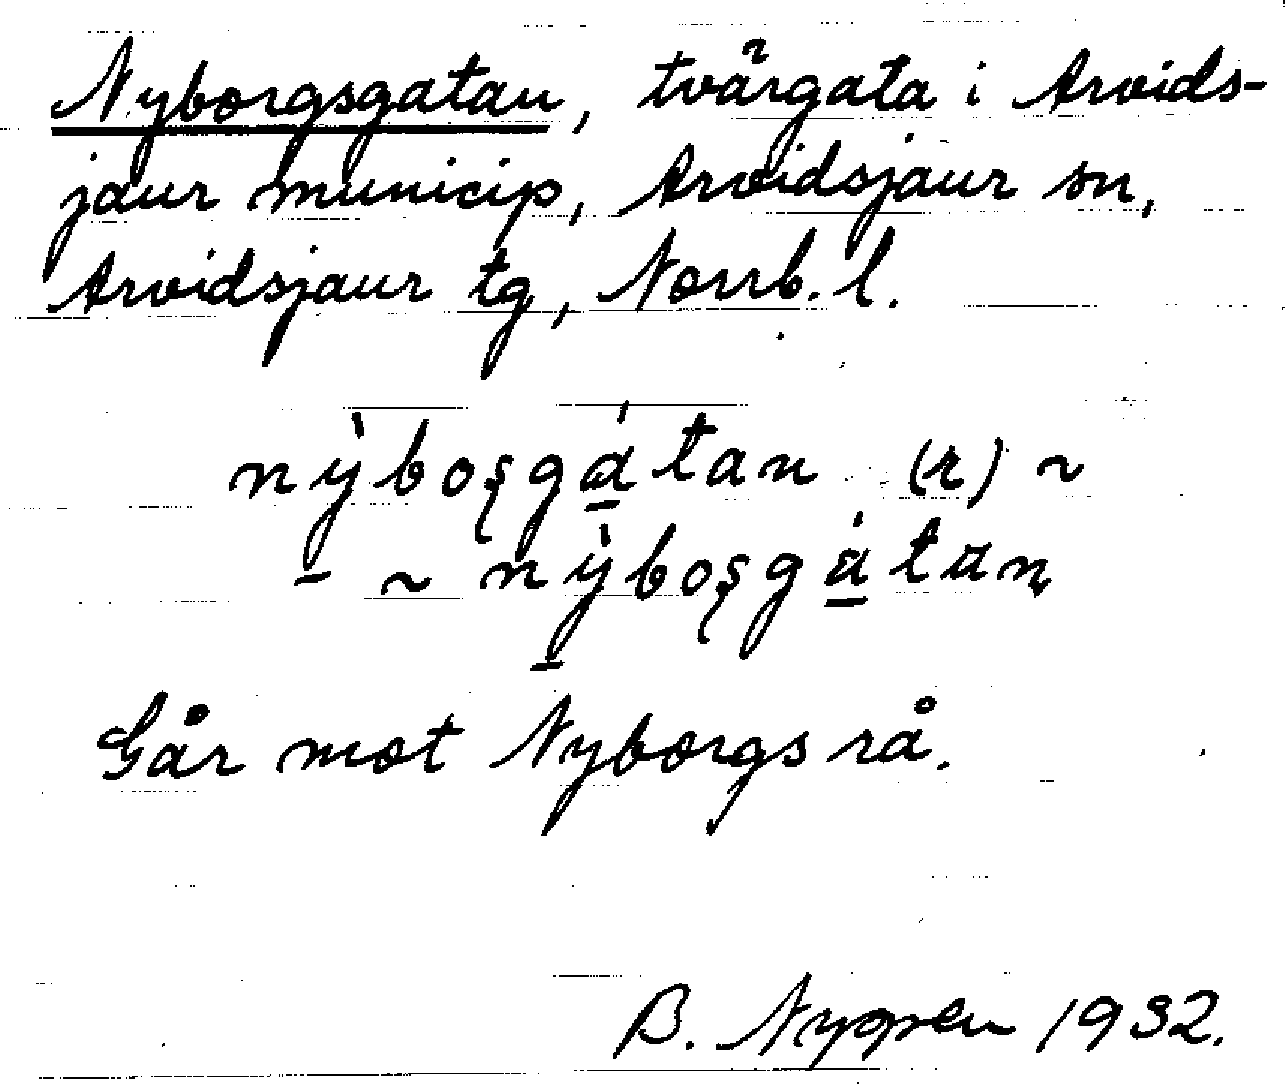 Nyborgsgatan, tvärgata i Arvids-
jaur municip, Arvidsjaur sn,
Arvidsjaur tg, Norrb. l.
nỳ̠boʂgá̠tan (r) ~
~ nỳ̠boʂgá̠tan̥
Går mot Nyborgs rå.
B. Nygren 1932.